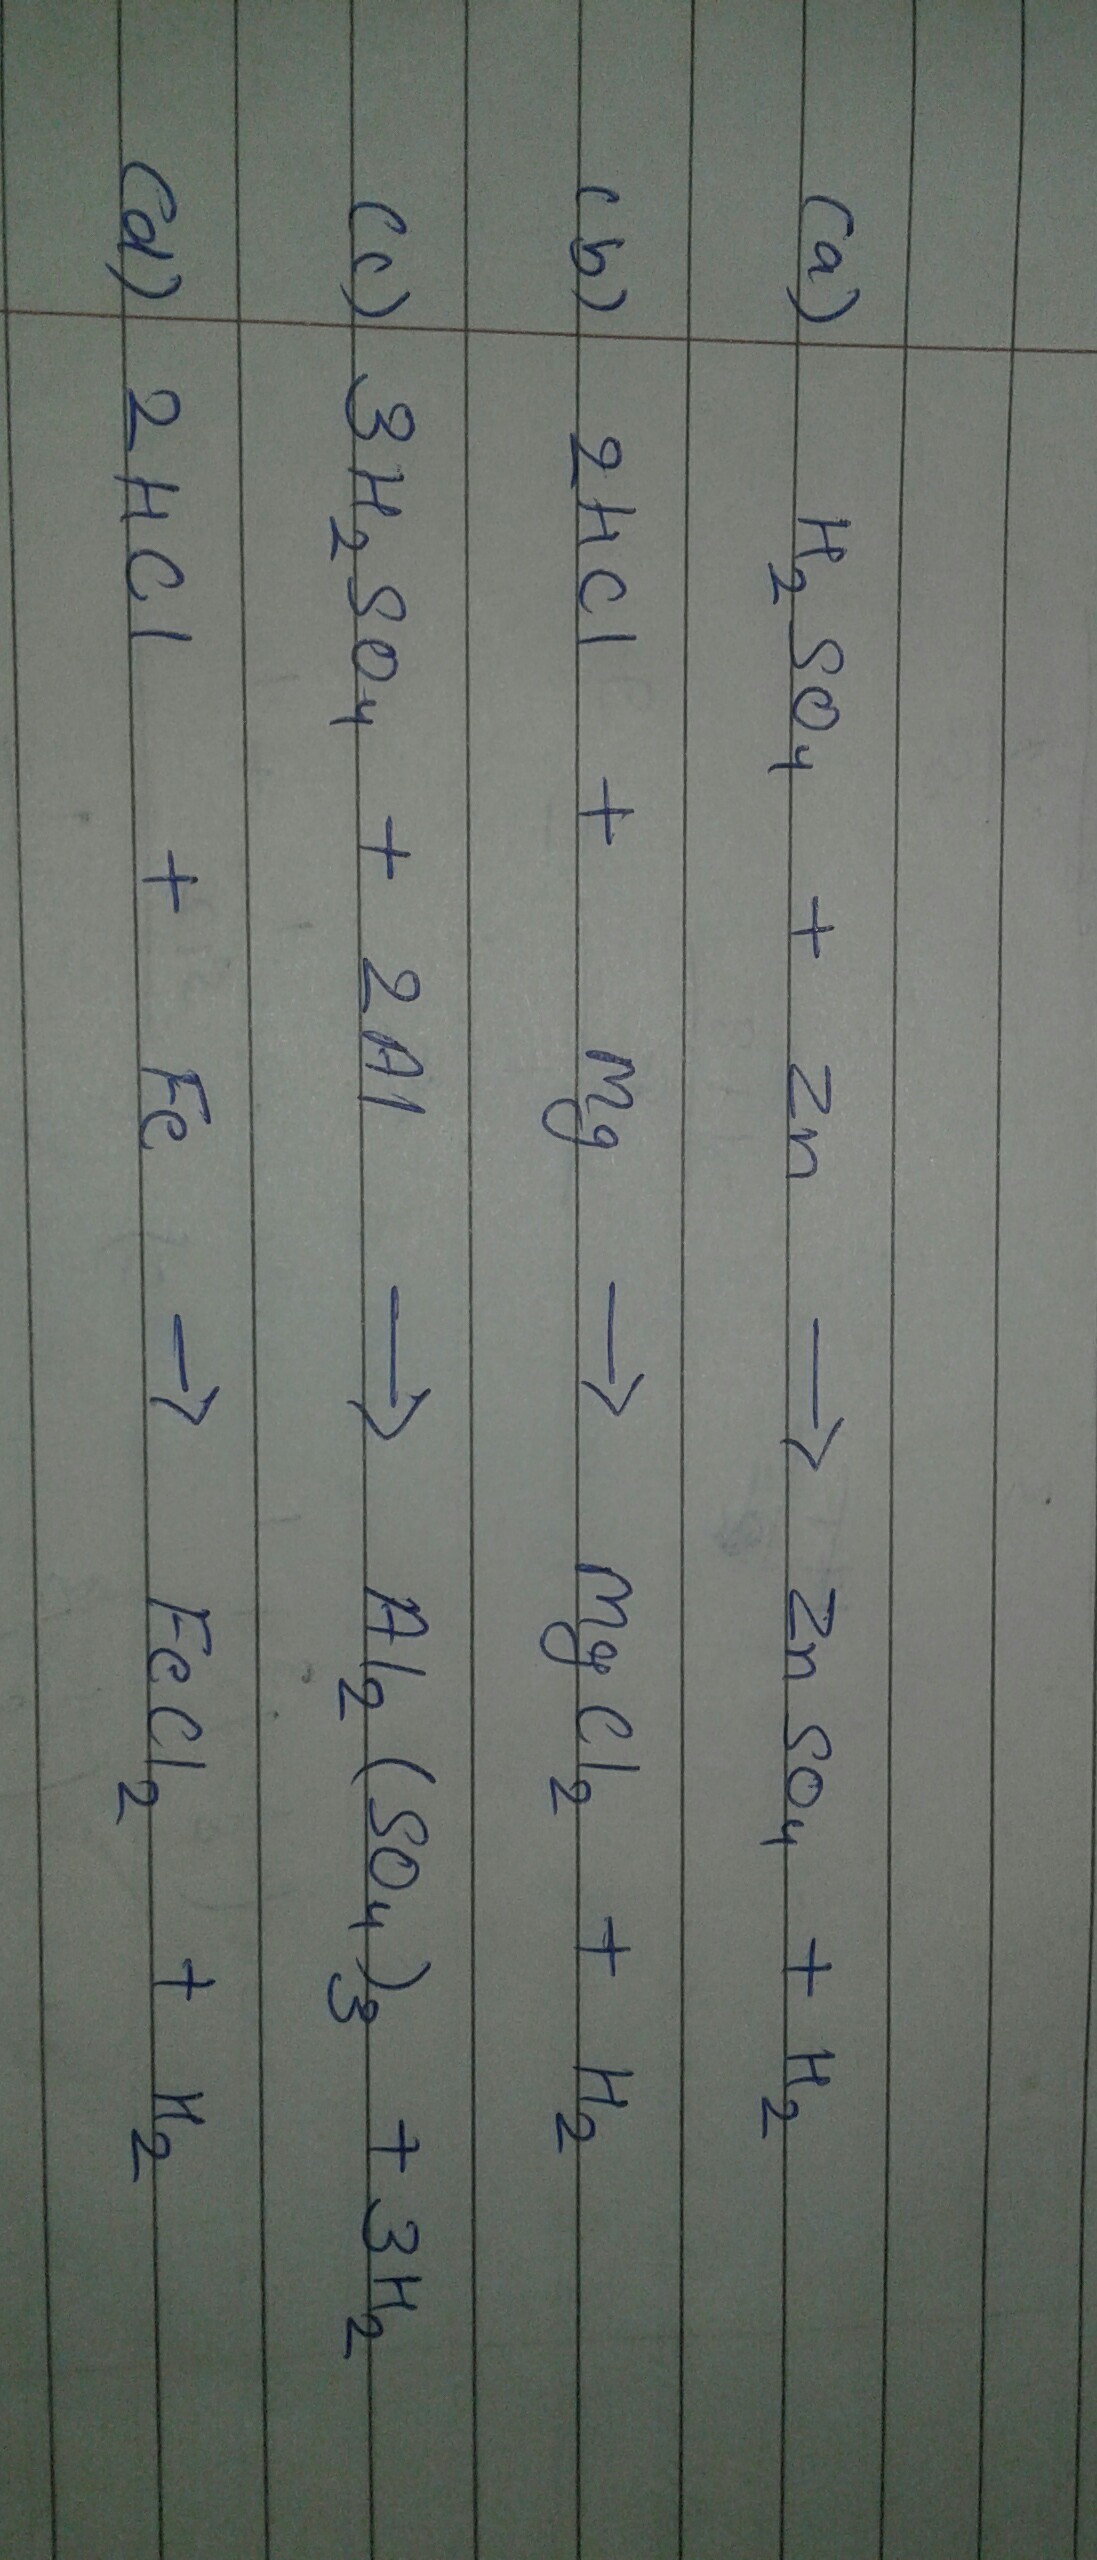 (a) H₂SO₄ + Zn → ZnSO₄ + H₂
(b) 2HCl + Mg → MgCl₂ + H₂
(c) 3H₂SO₄ + 2Al → Al₂(SO₄)₃ + 3H₂
(d) 2HCl + Fe → FeCl₂ + H₂